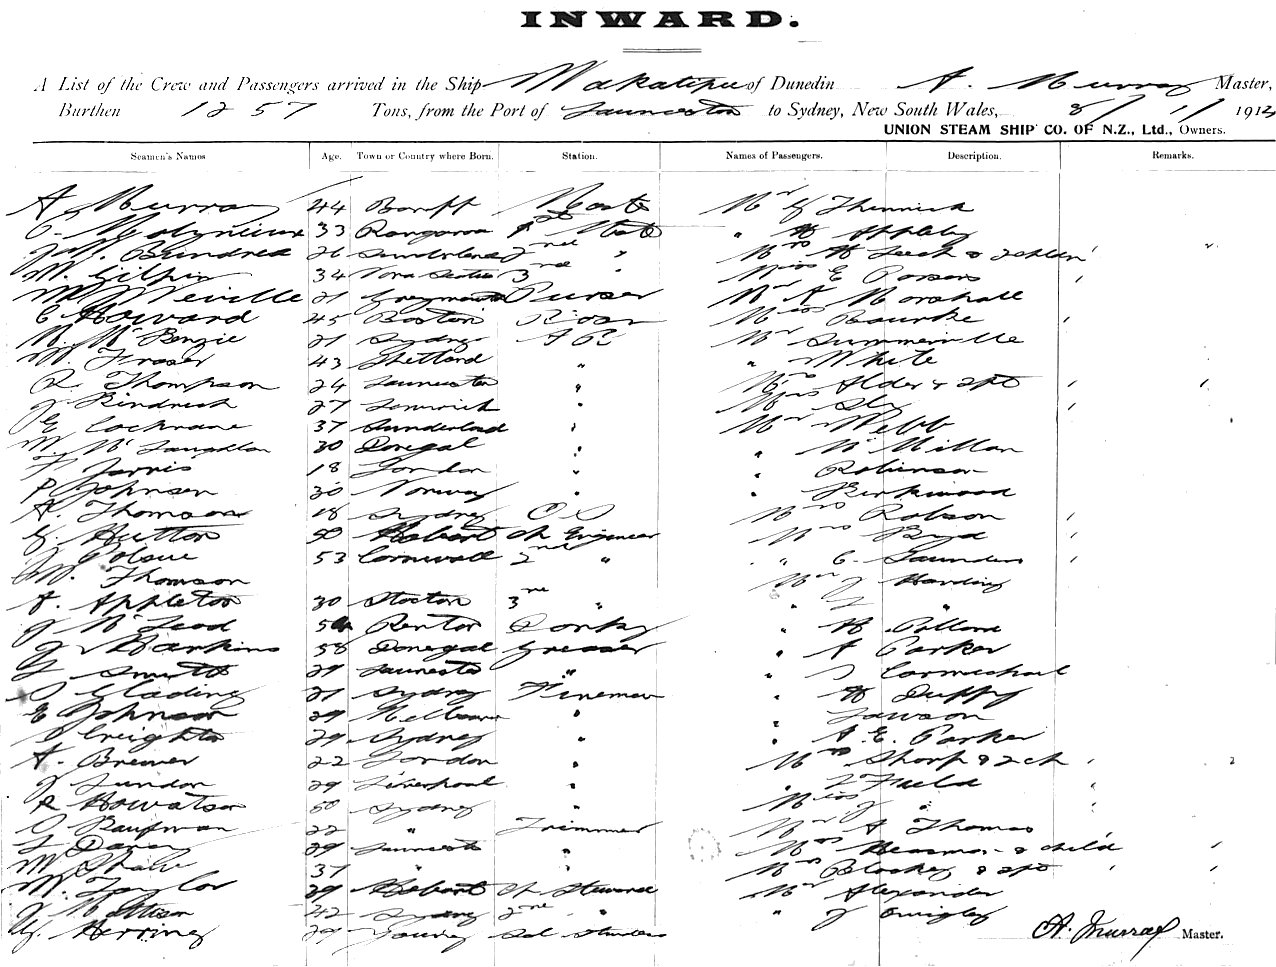 INWARD.
A List of the Crew and Passengers arrived in the Ship Wakatipu of Dunedin A. Murray Master,
Burthen 1257 Tons, from the Port of Launceston to Sydney, New South Wales, 8/1/1914
UNION STEAM SHIP CO. OF N.Z., Ltd., Owners.
Seamen's Names Age. Town or Country where Born. Station. Names of Passengers. Description. Remarks.
A. Murray 44 Banff Master Mr
C. Molyneux 33 Rangaroa 1st Mate " H Appleby
Brindred 26 Sunderland 2nd " Mrs H Leech & 2 chldn
M. Gilpin 34 Nova Scotia 3rd Miss E Parsons
Neville 21 Greymouth Purser Mr A Marshall
C Howard 45 Boston Miss Bourke
M. McKenzie 21 Sydney A B Mr Summerville
M. Fraser 43 Shetland " " White
R. Thompson 24 Launceston " Mrs Alder &
J Kindred 27 " Sly
E Cochrane 37 Sunderland " Mr Webb
W. McLaughlan 30 Donegal " " McMillan
F Jarvis 18 London " " Robinson
P Johnsen 30 Norway " " Kirkwood
A. Thomson 18 Sydney O S Mrs Robson
G. Hutton 50 Hobart Ch Engineer Mrs Boyd
Polsue 53 Cornwall 2nd " " C. Saunders
W. Thomson Mr J Harding
A. Appleton 30 Stockton 3rd " " "
J McLeod 54 Renton Donky " H Pollard
J Harkins 58 Donegal Greaser " A Parker
Smith 29 Launceston " " J Carmichael
Glading 21 Sydney Fireman " H Duffy
E Johnson 29 Melbourne " " Lawson
Creighton 29 Sydney " " A. E. Parker
A. Brewer 22 London " Mrs Sharp & 2 ch 2
J Lundon 29 Liverpool " " Field
R Howatson 50 Sydney " Miss J "
Kaufman 22 " Trimmer Mr A Thomas
Davey 29 Launceston " Mrs Beaman & child
M Shaw 37 " " Mrs Blockey &
M. Taylor 39 Hobart Ch Steward Mr Alexander
J Mattison 42 Sydney 2nd " " J Quigley
G. Herring 29
A. Murray Master.